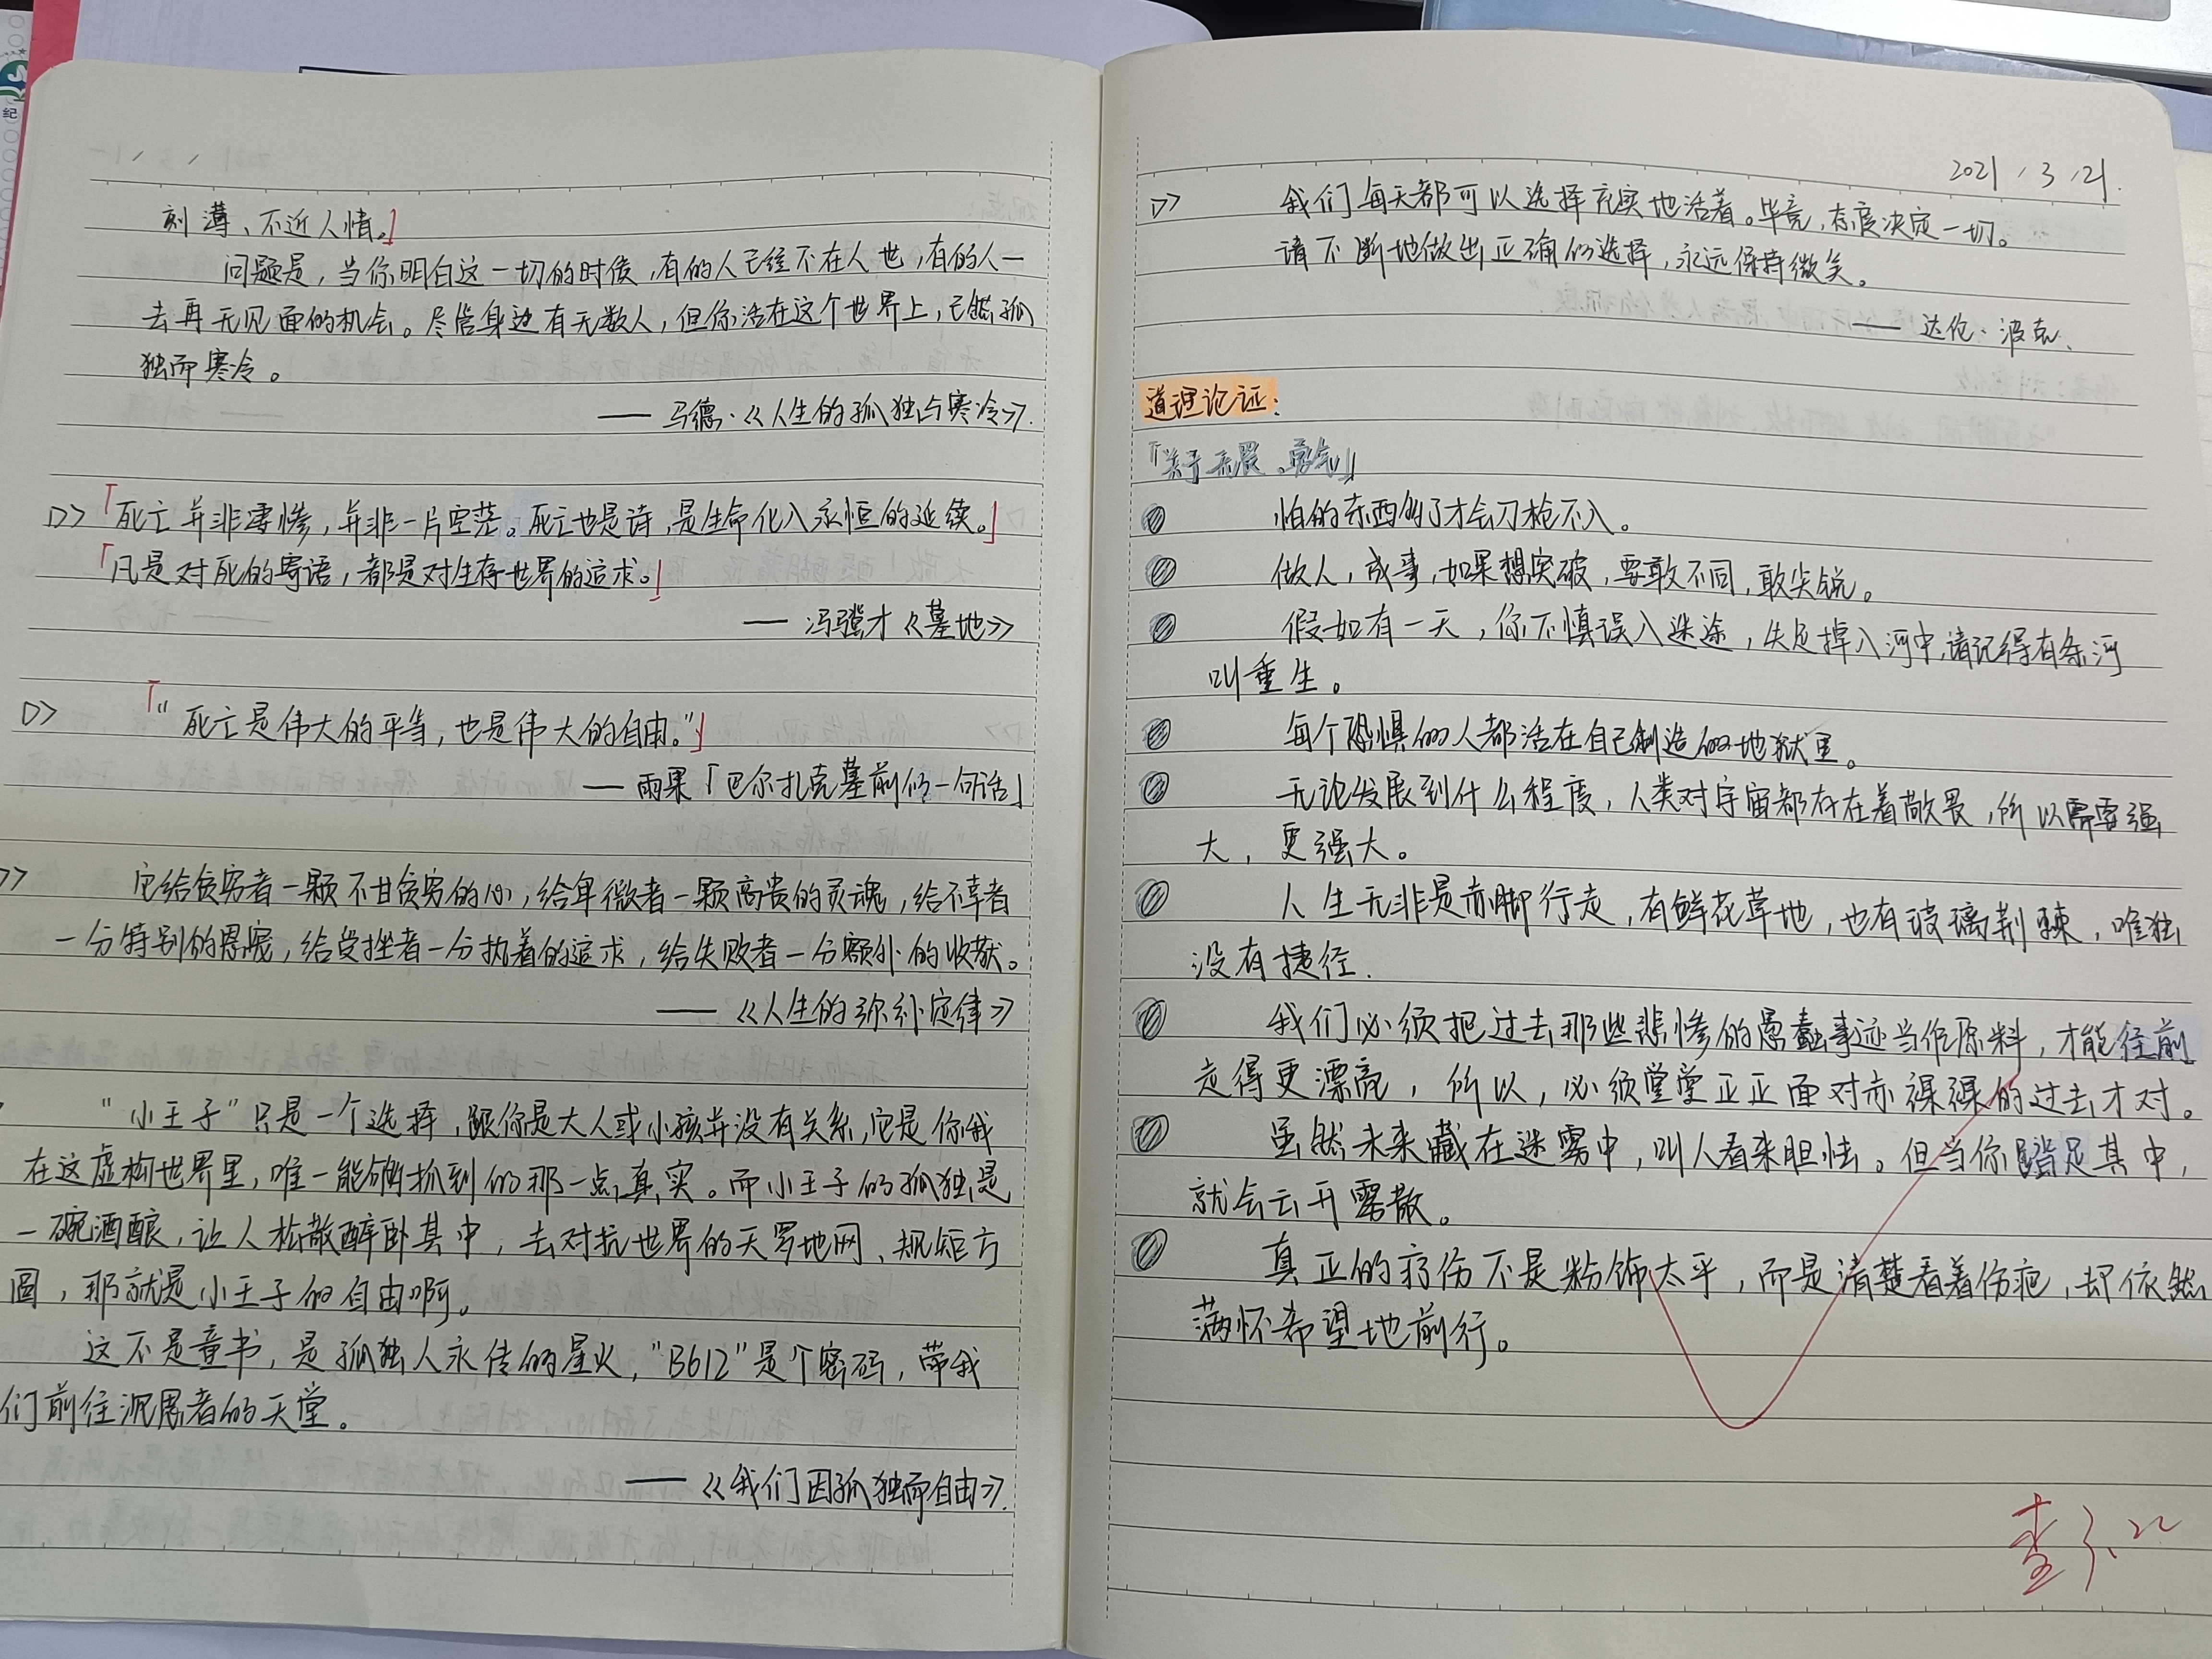 纪
刻薄、不近人情。」
问题是，当你明白这一切的时候，有的人已经不在人世，有的人一
去再无见面的机会。尽管身边有无数人，但你活在这个世界上，已然孤
独而寒冷。
—— 马德·《人生的孤独与寒冷》.
「死亡并非凄惨，并非一片空茫。死亡也是诗，是生命化入永恒的延续。」
「凡是对死的寄语，都是对生存世界的追求。」
—— 冯强才《墓地》
「“死亡是伟大的平等，也是伟大的自由。”」
—— 雨果「巴尔扎克墓前的一句话」
它给贫穷者一颗不甘贫穷的心，给卑微者一颗高贵的灵魂，给不幸者
一分特别的恩宠，给受挫者一分执着的追求，给失败者一分额外的收获。
——《人生的弥补定律》
“小王子”只是一个选择，跟你是大人或小孩并没有关系，它是你我
在这虚构世界里，唯一能够抓到的那一点真实。而小王子的孤独是
一碗酒酿，让人松散醉卧其中，去对抗世界的天罗地网、规矩方
圆，那就是小王子的自由啊。
这不是童书，是孤独人永传的星火，“B612”是个密码，带我
们前往泥愚者的天堂。
——《我们因孤独而自由》.
2021 / 3 / 21.
我们每天都可以选择充实地活着。毕竟，态度决定一切。
请不断地做出正确的选择，永远保持微笑。
—— 达伦·波克.
道理论证：
「关于无畏、勇气」
怕的东西够了才会刀枪不入。
做人，成事，如果想突破，要敢不同，敢尖锐。
假如有一天，你不慎误入迷途，失足掉入河中，请记得有条河
叫重生。
每个恐惧的人都活在自己制造的地狱里。
无论发展到什么程度，人类对宇宙都存在着敬畏，所以需要强
大，更强大。
人生无非是赤脚行走，有鲜花草地，也有玻璃荆棘，唯独
没有捷径.
我们必须把过去那些悲惨的愚蠢事迹当作原料，才能往前
走得更漂亮，所以，必须堂堂正正面对赤裸裸的过去才对。
虽然未来藏在迷雾中，叫人看来胆怯。但当你踏足其中，
就会云开雾散。
真正的疗伤不是粉饰太平，而是清楚看着伤疤，却依然
满怀希望地前行。
查 3.22